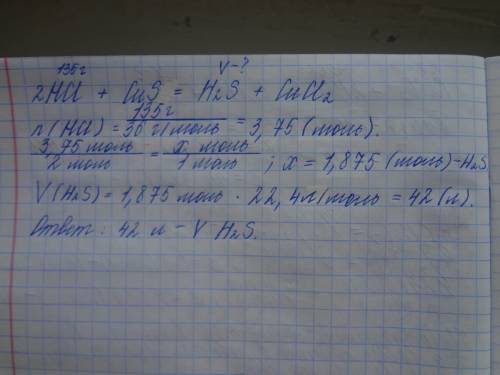 135г V-?
2HCl + CuS = H₂S + CuCl₂
n(HCl) = 135г / 36 г/моль = 3,75 (моль).
3,75 моль / 2 моль = x моль / 1 моль ; x = 1,875 (моль) - H₂S
V(H₂S) = 1,875 моль · 22,4 л/моль = 42 (л).
Ответ: 42 л - V H₂S.